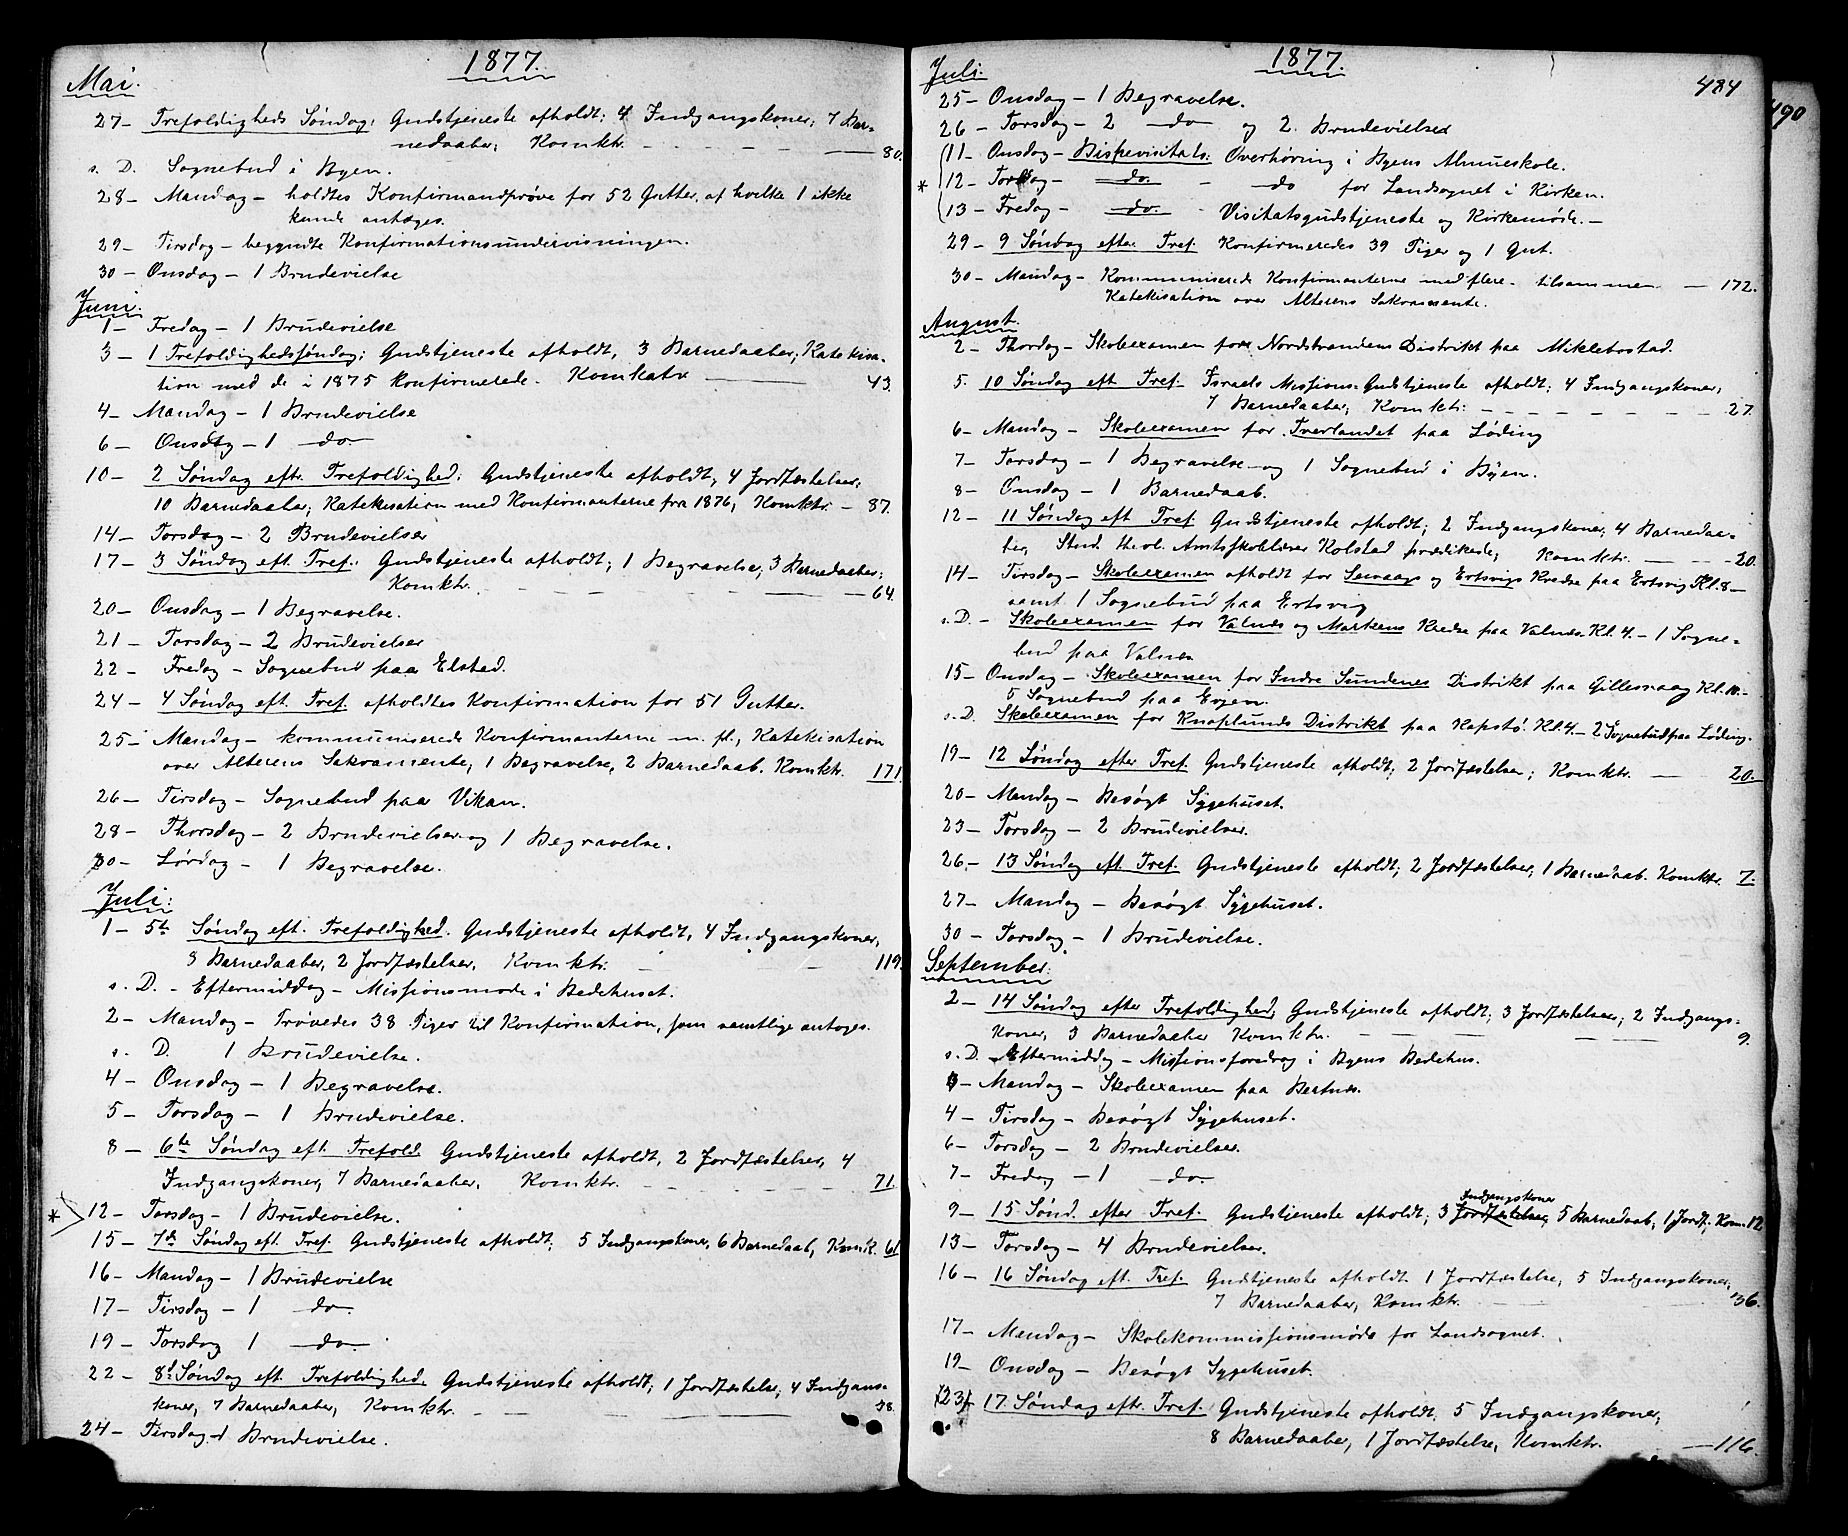 1877.
Mai.
27 – Trefoldigheds Søndag: Gudstjeneste afholdt; 4 Indgangskoner; 7 Bar-
nedaaber; Komktr. – – – – 80.
s. D. Sognebud i Byen.
28 – Mandag – holdtes Konfirmandprøve for 52 Gutter, af hvilke 1 ikke
kunde antages.
29 – Tirsdag – begyndte Konfirmationsundervisningen.
30 – Onsdag – 1 Brudevielse
Juni.
1 – Fredag – 1 Brudevielse
3 – 1 Trefoldighedssøndag; Gudstjeneste afholdt, 3 Barnedaaber; Katekisa-
tion med de i 1875 konfirmerede. Komkatr — 43.
4 – Mandag – 1 Brudevielse
6 – Onsdag – 1 do
10 – 2 Søndag eftr. Trefoldighed: Gudstjeneste afholdt, 4 Jordfæstelser;
10 Barnedaaber; Katekisation med Konfirmanterne fra 1876; Komktr. – 87.
14 – Torsdag – 2 Brudevielser
17 – 3 Søndag eft. Tref.: Gudstjeneste afholdt; 1 Begravelse; 3 Barnedaaber;
Komktr. – – – – 64.
20 – Onsdag – 1 Begravelse.
21 – Torsdag – 2 Brudevielser
22 – Fredag – Sognebud paa Elstad.
24 – 4 Søndag eft. Tref. afholdtes Konfirmation for 51 Gutter.
25 – Mandag – kommuniserede Konfirmanterne m. fl., Katekisation
over Alterens Sakramente, 1 Begravelse, 2 Barnedaab. Komktr. 171.
26 – Tirsdag – Sognebud paa Vikan.
28 – Thorsdag – 2 Brudevielser og 1 Begravelse.
30 – Lørdag – 1 Begravelse.
Juli:
1 – 5te Søndag eft. Trefoldighed. Gudstjeneste afholdt, 4 Indgangskoner,
3 Barnedaaber, 2 Jordfæstelser, Komktr. – – 119.
s. D. – Eftermiddag – Missionsmøde i Bedehuset.
2 – Mandag – Prøvedes 38 Piger til Konfirmation, som samtlige antoges.
s. D. 1 Brudevielse.
4 – Onsdag – 1 Begravelse.
5 – Torsdag – 1 Brudevielse.
8 – 6te Søndag eft. Trefold. Gudstjeneste afholdt, 2 Jordfæstelser, 4
Indgangskoner, 7 Barnedaaber, Komktr. – – – 71.
* 12 – Torsdag – 1 Brudevielse.
15 – 7de Søndag eft. Tref. Gudstjeneste afholdt; 5 Indgangskoner, 6 Barnedaab, Komk. 61
16 – Mandag – 1 Brudevielse
17 – Tirsdag – 1 do
19 – Torsdag 1 do
22 – 8de Søndag eft. Trefoldighed. Gudstjeneste afholdt; 1 Jordfæstelse; 4 Indgangs-
koner; 7 Barnedaaber, Komktr. – – – 28.
24 – Tirsdag – 1 Brudevielse.
1877.
484
490
Juli.
25 – Onsdag – 1 Begravelse.
26 – Torsdag – 2 do og 2. Brudevielser
11 – Onsdag – Bispevisitats: Overhøring i Byens Almueskole.
* 12 – Torsdag – do – do for Landsognet i Kirken.
13 – Fredag – do – Visitatsgudstjeneste og Kirkemøde. –
29 – 9 Søndag efter Tref. Konfirmeredes 39 Piger og 1 Gut.
30 – Mandag – Kommuniserede Konfirmanterne med flere – tilsammen – 172.
Katekisation over Alterens Sakramente.
August.
2 – Thorsdag – Skoleexamen for Nordstrandens Distrikt paa Miklebostad.
5. 10 Søndag eft Tref. Israels Missions-Gudstjeneste afholdt; 4 Indgangskoner,
7 Barnedaaber; Komktr: – – – – 27.
6 – Mandag – Skoleexamen for Tverlandet paa Løding
7 – Torsdag – 1 Begravelse og 1 Sognebud i Byen.
8 – Onsdag – 1 Barnedaab.
12 – 11 Søndag eft Tref Gudstjeneste afholdt; 2 Indgangskoner, 4 Barnedaa-
ber, Stud. theol. Amtsskolelærer Kolstad prædikede; Komktr. – – 20.
14 – Tirsdag – Skoleexamen afholdt for Seivaags og Ertsvigs Kredse paa Ertsvig Kl. 8 –
samt 1 Sognebud paa Ertsvig
s. D. – Skoleexamen for Valnæs og Markens Kredse paa Valnæs Kl. 4. – 1 Sogne-
bud paa Valnæs
15 – Onsdag – Skoleexamen for Indre Sundenes Distrikt paa Gillesvaag Kl. 10. –
5 Sognebud paa Evjen.
s. D. Skoleexamen for Knaplunds Distrikt paa Kapstø. Kl. 4. – 2 Sognebud paa Løding.
19 – 12 Søndag efter Tref. Gudstjeneste afholdt; 2 Jordfæstelser; Komktr. — 20.
20 – Mandag – Besøgt Sygehuset.
23 – Torsdag – 2 Brudevielser.
26 – 13 Søndag eft. Tref. Gudstjeneste afholdt; 2 Jordfæstelser, 1 Barnedaab. Komktr. 7.
27 – Mandag – Besøgt Sygehuset.
30 – Torsdag – 1 Brudevielse.
September.
2 – 14 Søndag efter Trefoldighed, Gudstjeneste afholdt; 3 Jordfæstelser; 2 Indgangs-
koner, 3 Barnedaaber Komktr. – – 9.
s. D. – Eftermiddag – Missionsforedrag i Byens Bedehus.
3 – Mandag – Skoleexamen paa Bertnes.
4 – Tirsdag – Besøgt Sygehuset.
6 – Torsdag – 2 Brudevielser.
7 – Fredag – 1 do
9 – 15 Sønd. efter Tref. Gudstjeneste afholdt; 3 Jordfæstelser Indgangskoner 5 Barnedaab, 1 Jordf., Kom. 12
13 – Torsdag – 4 Brudevielser.
16 – 16 Søndag eft. Tref. Gudstjeneste afholdt. 1 Jordfæstelse, 5 Indgangskoner,
7 Barnedaaber, Komktr. – 36.
17 – Mandag – Skolekommissionsmøde for Landsognet.
19 – Onsdag – Besøgt Sygehuset.
23 – 17 Søndag eftr. Tref. Gudstjeneste afholdt. 5 Indgangskoner,
8 Barnedaaber, 1 Jordfæstelse, Komktr. — 116.